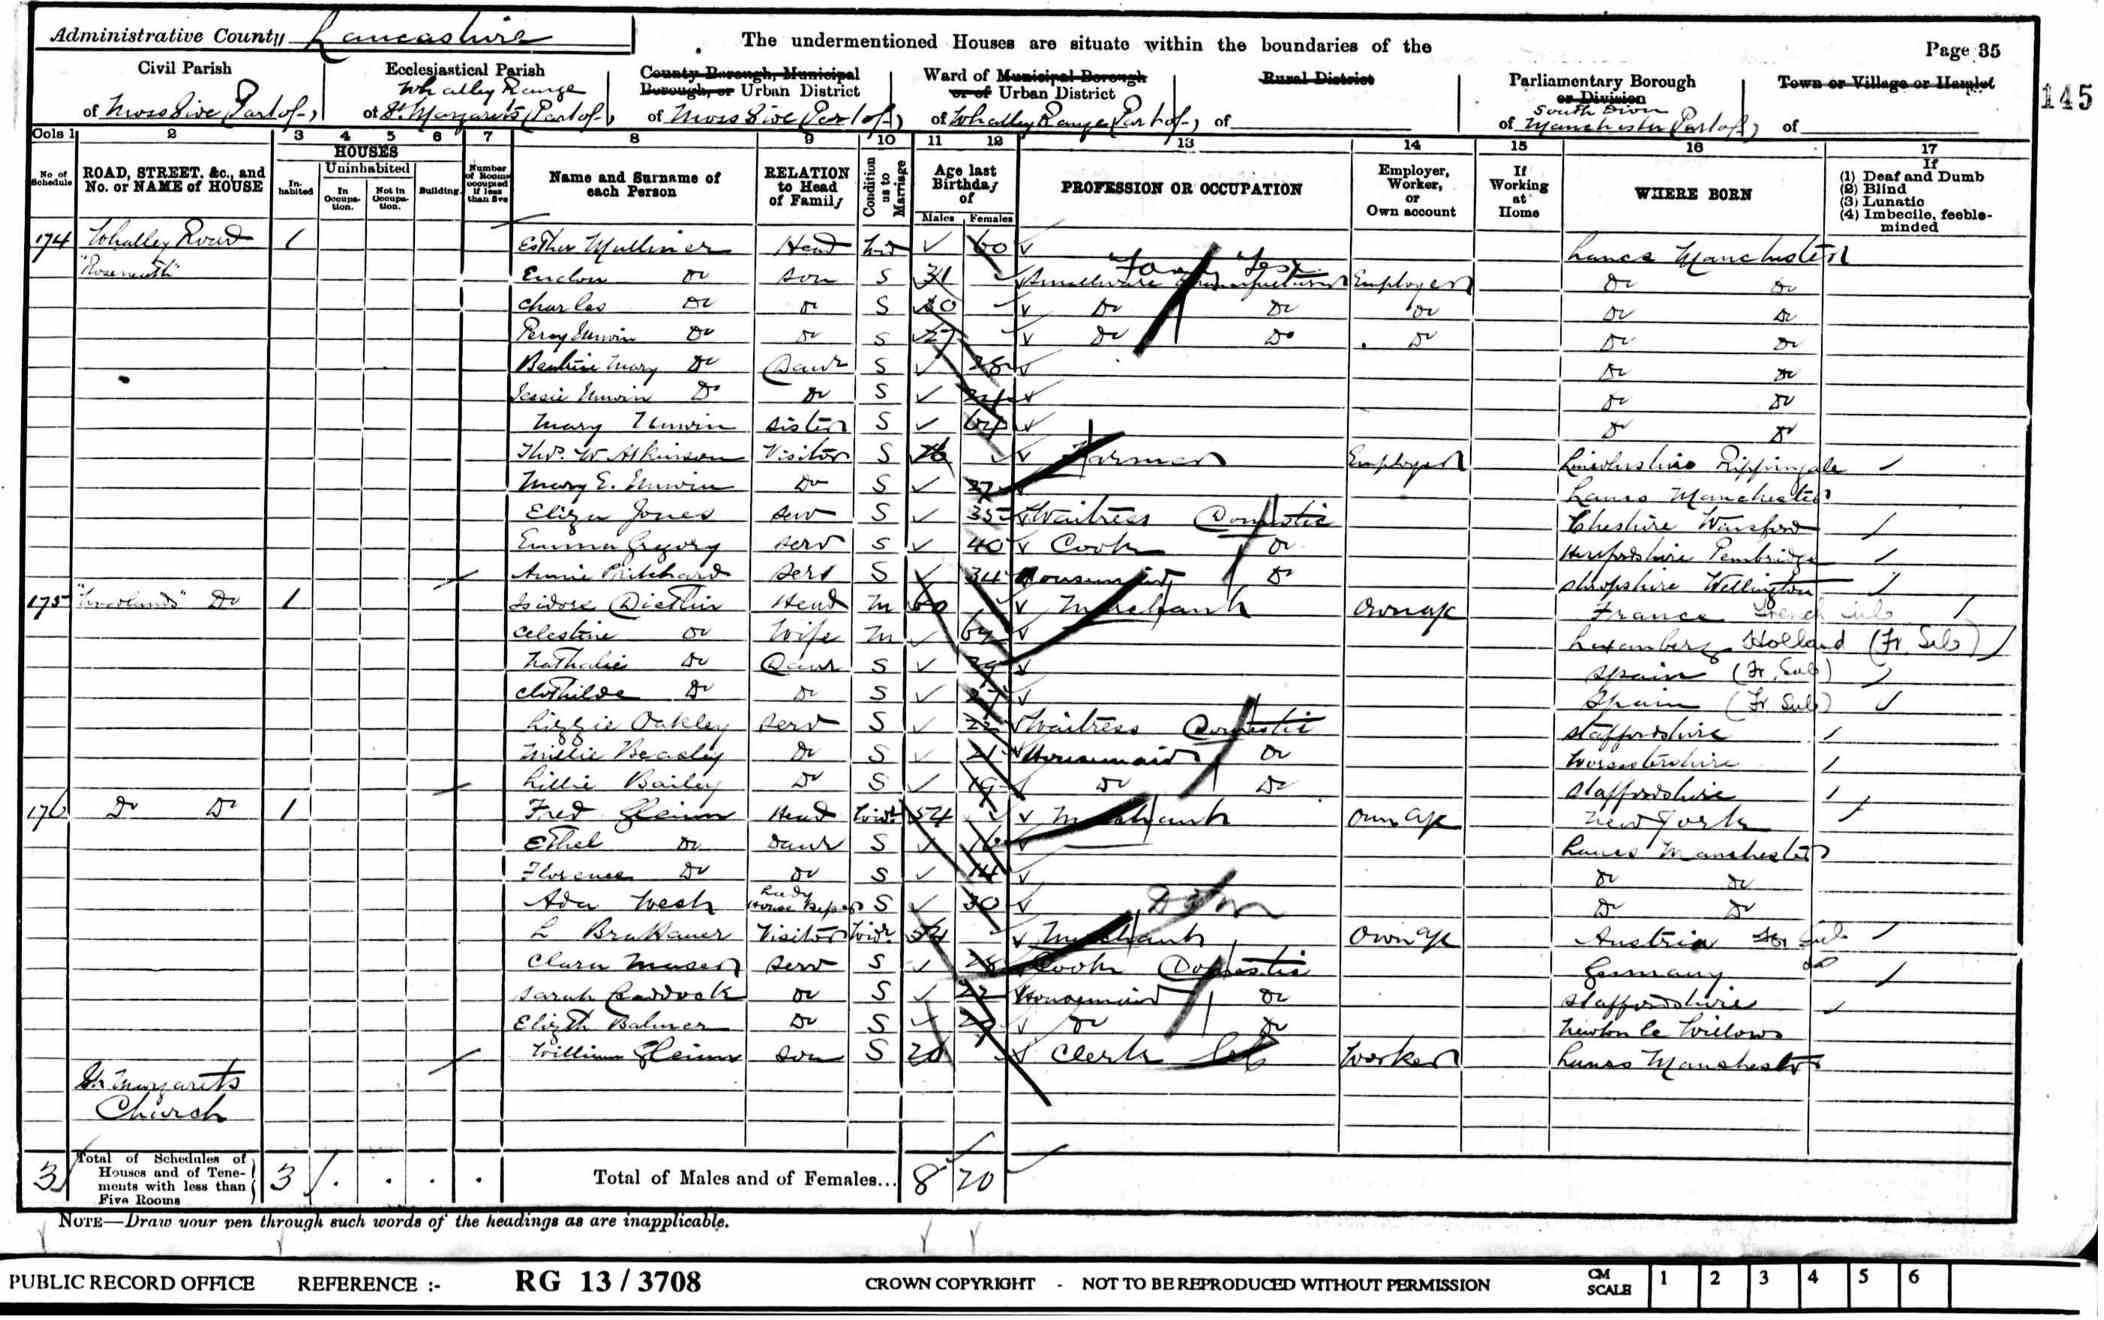 Administrative County Lancashire
The undermentioned Houses are situate within the boundaries of the
Page 35
145
Civil Parish
of Moss Side (Part of)
Ecclesiastical Parish
Whalley Range
of St. Margarets (Part of)
County Borough, Municipal
Borough, or Urban District
of Moss Side (Part of)
Ward of Municipal Borough
or of Urban District
of Whalley Range (Part of)
Rural District
of
Parliamentary Borough
or Division
South Divn
of Manchester (Part of)
Town or Village or Hamlet
of
Cols 1 2 3 4 5 6 7 8 9 10 11 12 13 14 15 16 17
No. of Schedule
ROAD, STREET, &c., and No. or NAME of HOUSE
HOUSES
Inhabited
Uninhabited
In Occupation.
Not in Occupation.
Building.
Number of Rooms occupied if less than five
Name and Surname of each Person
RELATION to Head of Family
Condition as to Marriage
Age last Birthday of
Males Females
PROFESSION OR OCCUPATION
Employer, Worker, or Own account
If Working at Home
WHERE BORN
If
(1) Deaf and Dumb
(2) Blind
(3) Lunatic
(4) Imbecile, feeble-minded
174 Whalley Road 1 Esther Mulliner Head Wid 60 Lancs Manchester
"Roseneath" Do son S 31 Smallware Manufacturer Employer Do Do
Charles Do Do S 30 Do Do Do Do Do
Percy Unwin Do Do S 27 Do Do Do Do Do
Mary Do Daur S 28 Do Do
Jessie Unwin Do Do S Do Do
Mary Unwin Sister S 64 Do Do
Thos. W Atkinson Visitor S Farmer Employer Lincolnshire Rippingale
Mary E. Unwin Do S 27 Lancs Manchester
Eliza Jones Serv S 35 Waitress Domestic Cheshire Winsford
Emma Gregory Serv S 40 Cook Do Herefordshire Pembridge
Annie Pritchard Serv S 34 Housemaid Do Shropshire Wellington
175 Do 1 Isidore Head M 60 Merchant Own a/c France French Sub
Celestine Do Wife M Luxemberg Holland (Fr. Sub)
Nathalie Do Daur S Spain (Fr. Sub)
Clothilde Do Do S 27 Spain (Fr. Sub)
Lizzie Oakley Serv S 22 Waitress Domestic Staffordshire
Millie Beasley Do S 21 Housemaid Do Worcestershire
Lillie Bailey Do S 19 Do Do Staffordshire
176 Do Do 1 Fred Head Widr 54 Merchant Own a/c New York
Ethel Do Daur S 16 Lancs Manchester
Florence Do Do S 14 Do Do
Ada Lady House Keeper S 30 Do Do
L Visitor Widr 54 Merchant Own a/c Austria Sub
Clara Serv S Cook Domestic Germany Do
Sarah Craddock Do S 22 Housemaid Do Staffordshire
Elizth Balmer Do S Do Do Newton le Willows
William son S 20 Clerk Worker Lancs Manchester
St. Margarets
Church
3 Total of Schedules of Houses and of Tenements with less than Five Rooms 3 Total of Males and of Females... 8 20
NOTE—Draw your pen through such words of the headings as are inapplicable.
PUBLIC RECORD OFFICE REFERENCE :- RG 13 / 3708 CROWN COPYRIGHT - NOT TO BE REPRODUCED WITHOUT PERMISSION CM SCALE 1 2 3 4 5 6